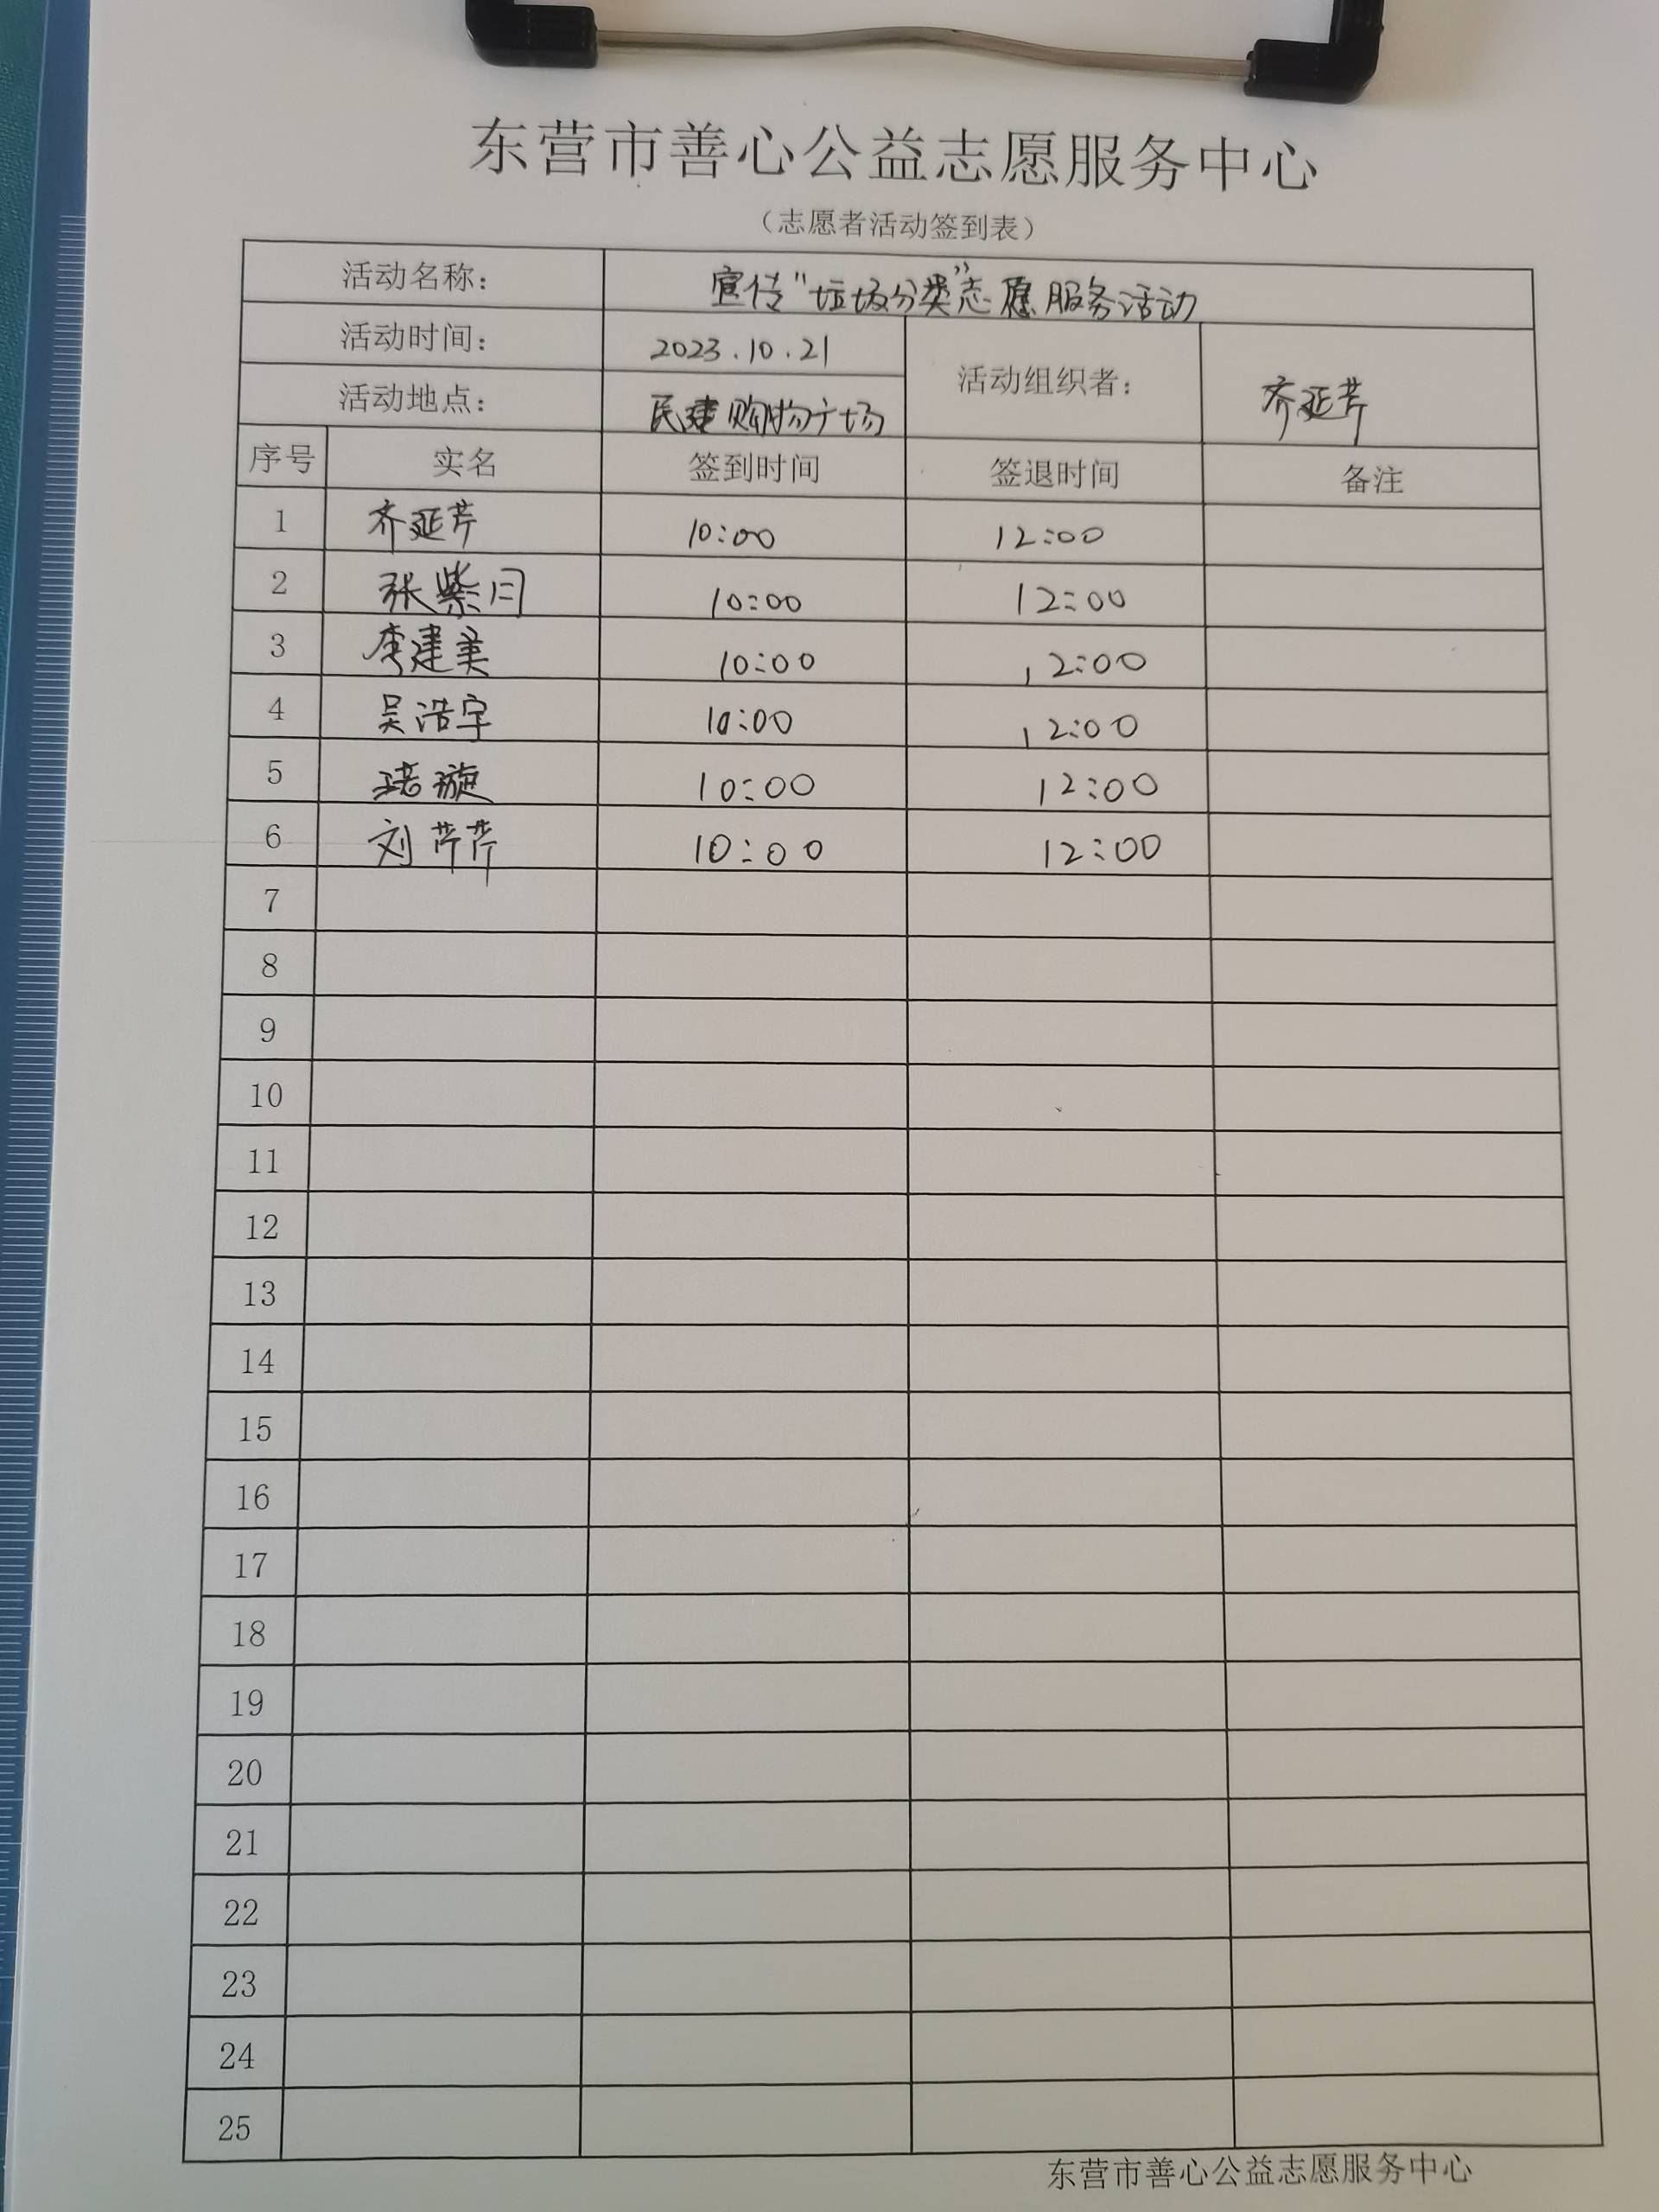 东营市善心公益志愿服务中心
（志愿者活动签到表）
活动名称： 宣传“垃圾分类”志愿服务活动
活动时间： 2023.10.21 活动组织者： 齐延芹
活动地点： 民建购物广场
序号 实名 签到时间 签退时间 备注
1 齐延芹 10:00 12:00
2 张紫月 10:00 12:00
3 李建美 10:00 12:00
4 吴浩宇 10:00 12:00
5 10:00 12:00
6 刘芹芹 10:00 12:00
7
8
9
10
11
12
13
14
15
16
17
18
19
20
21
22
23
24
25
东营市善心公益志愿服务中心